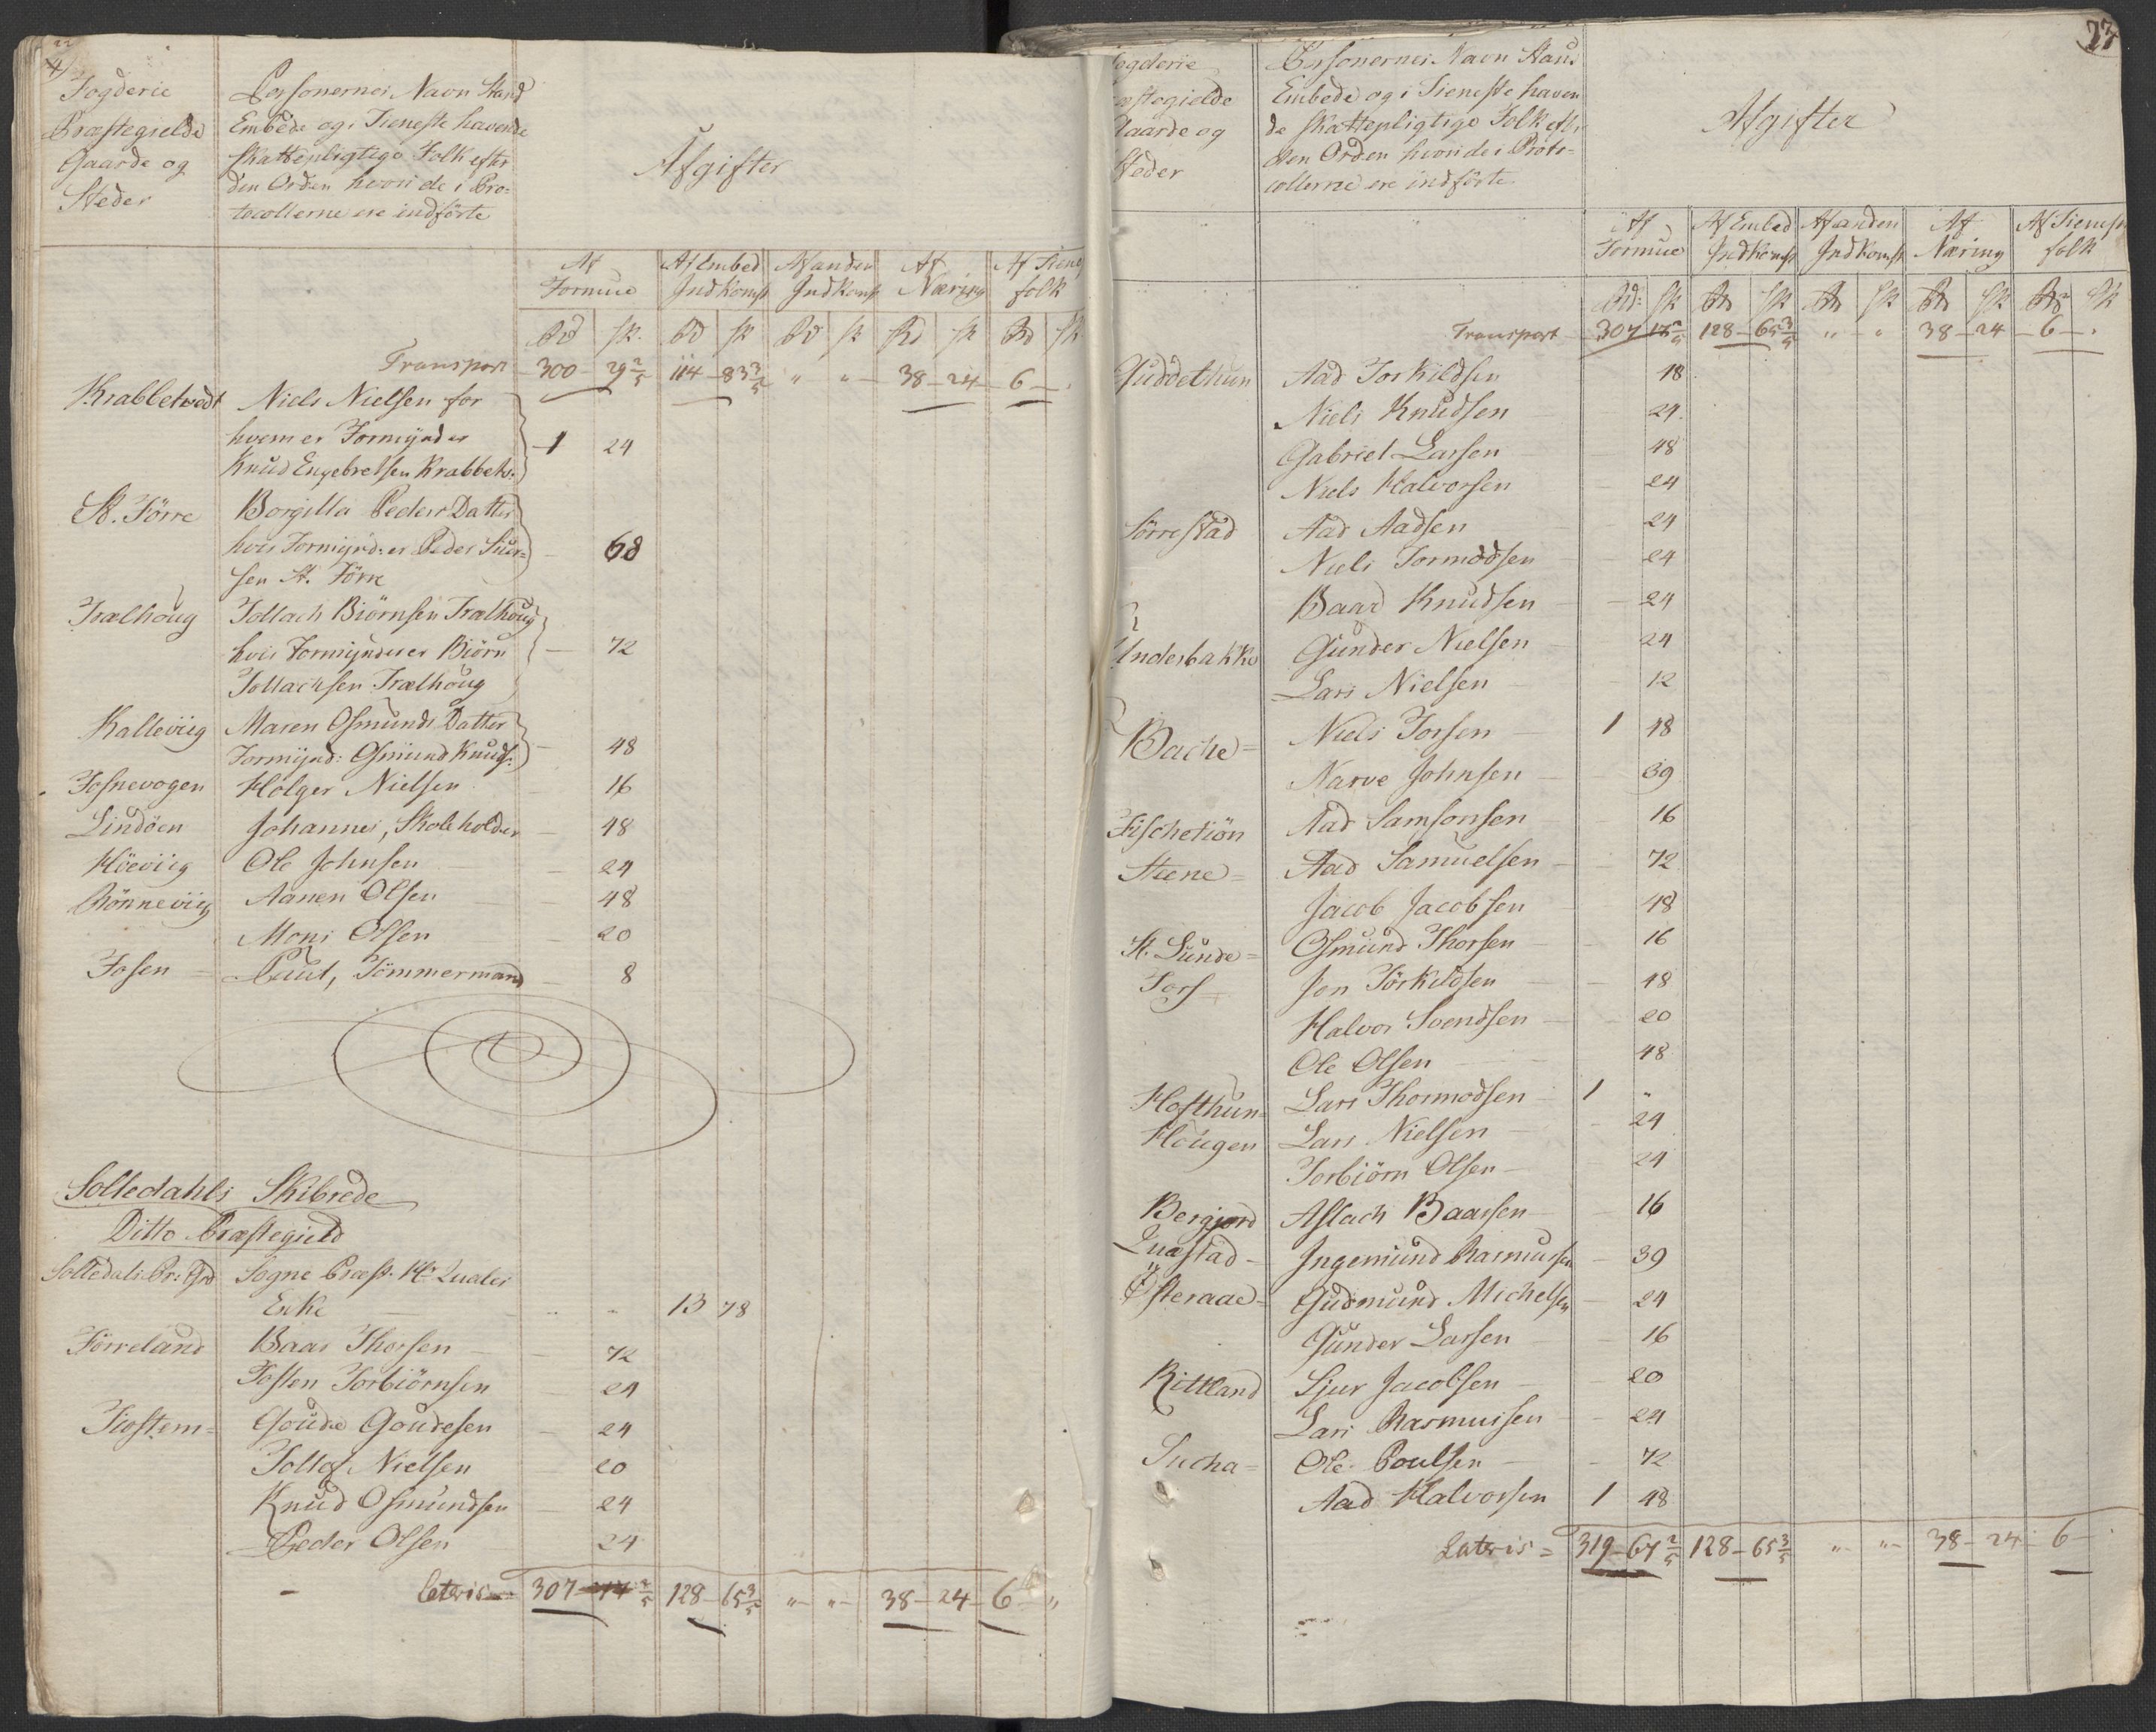 Fogderie
Præstegielde
Gaarde og
Steder
Personernes Navn Stand
Embede og i Tieneste havende
skattepligtige Folk efter
den Orden hvori de i Pro-
tocollerne ere indförte
Afgifter
Af Formue Af Embed Indkomst Af anden Indkomst Af Næring Af Tienest folk
Rd sk. Rd sk Rd sk Rd sk Rd sk
Transport 300 - 29 2/5 114 - 83 3/5 " " 38 - 24 6 - "
Krabbetvedt Niels Nielsen for
hvem er Formynder
Knud Engebretsen Krabbetv: 1 24
St. Förre Borgilla Peders Datter
hvis Formynd: er Peder Siver-
sen St. Förre 68
Trælhoug Tollach Biörnsen Trælhoug
hvis Formynder er Biörn 72
Tollachsen Trælhoug
Kalleviig Maren Osmunds Datter
Formynd: Osmund Knuds: 48
Fosnevogen Holger Nielsen 16
Lindöen Johannes, Skoleholder 48
Höeviig Ole Johnsen 24
Rönneviig Aanen Olsen 48
Mons Olsen 20
Fosen Paul, Tömmermand 8
Solledahls Skibrede
Ditto Præstegield
Solledals Pr: Grd Sogne Præst Hr Qvales
Enke " " 13 78
Förreland Baar Thorsen 72
Tosten Torbiörnsen 24
Tiostem= Goude Goudesen 24
Tollof Nielsen 20
Knud Osmundsen 24
Peder Olsen 24
Lateris 307 - 2/5 128 - 65 3/5 " " 38 - 24 6 "
77
Fogderie
Præstegielde
Gaarde og
Steder
Personernes Navn Stand
Embede og i Tieneste haven
de skattepligtige Folk efter
den Orden hvori de i Proto-
collerne ere indförte
Afgifter
Af Formue Af Embed Indkomst Af anden Indkomst Af Næring Af Tienest folk
Rd: sk Rd sk Rd sk Rd sk Rd sk
Transport 307 2/5 128 - 65 3/5 " " 38 - 24 6 -
Guddethun Aad Torkildsen 18
Niels Knudsen 24
Gabriel Larsen 48
Niels Halvorsen 24
Sörrestad Aad Aadsen 24
Niels Tormodsen 24
Baard Knudsen 24
Underbakke Gunder Nielsen 24
Lars Nielsen 12
Bache= Niels Torsen 1 48
Narve Johnsen 39
Fischetiön Aad Samsonsen 16
Steene= Aad Samuelsen 72
Jacob Jacobsen 48
St. Sunde= Osmund Thorsen 16
Fors Jon Törkildsen 48
Halvor Svendsen 20
Ole Olsen 48
Hofthun= Lars Thormodsen 1 "
Hougen Lars Nielsen 24
Torbiörn Olsen 24
Bergjord Aslach Baarsen 16
Quastad Ingemund Rasmussen 39
Österaae= Gudmund Michelsen 24
Gunder Larsen 16
Rittland Sjur Jacobsen 20
Lars Rasmussen 24
Sucha= Ole Poulsen 72
Aad Halvorsen 1 48
Lateris = 319 - 67 2/5 128 - 65 3/5 " " 38 - 24 6 -